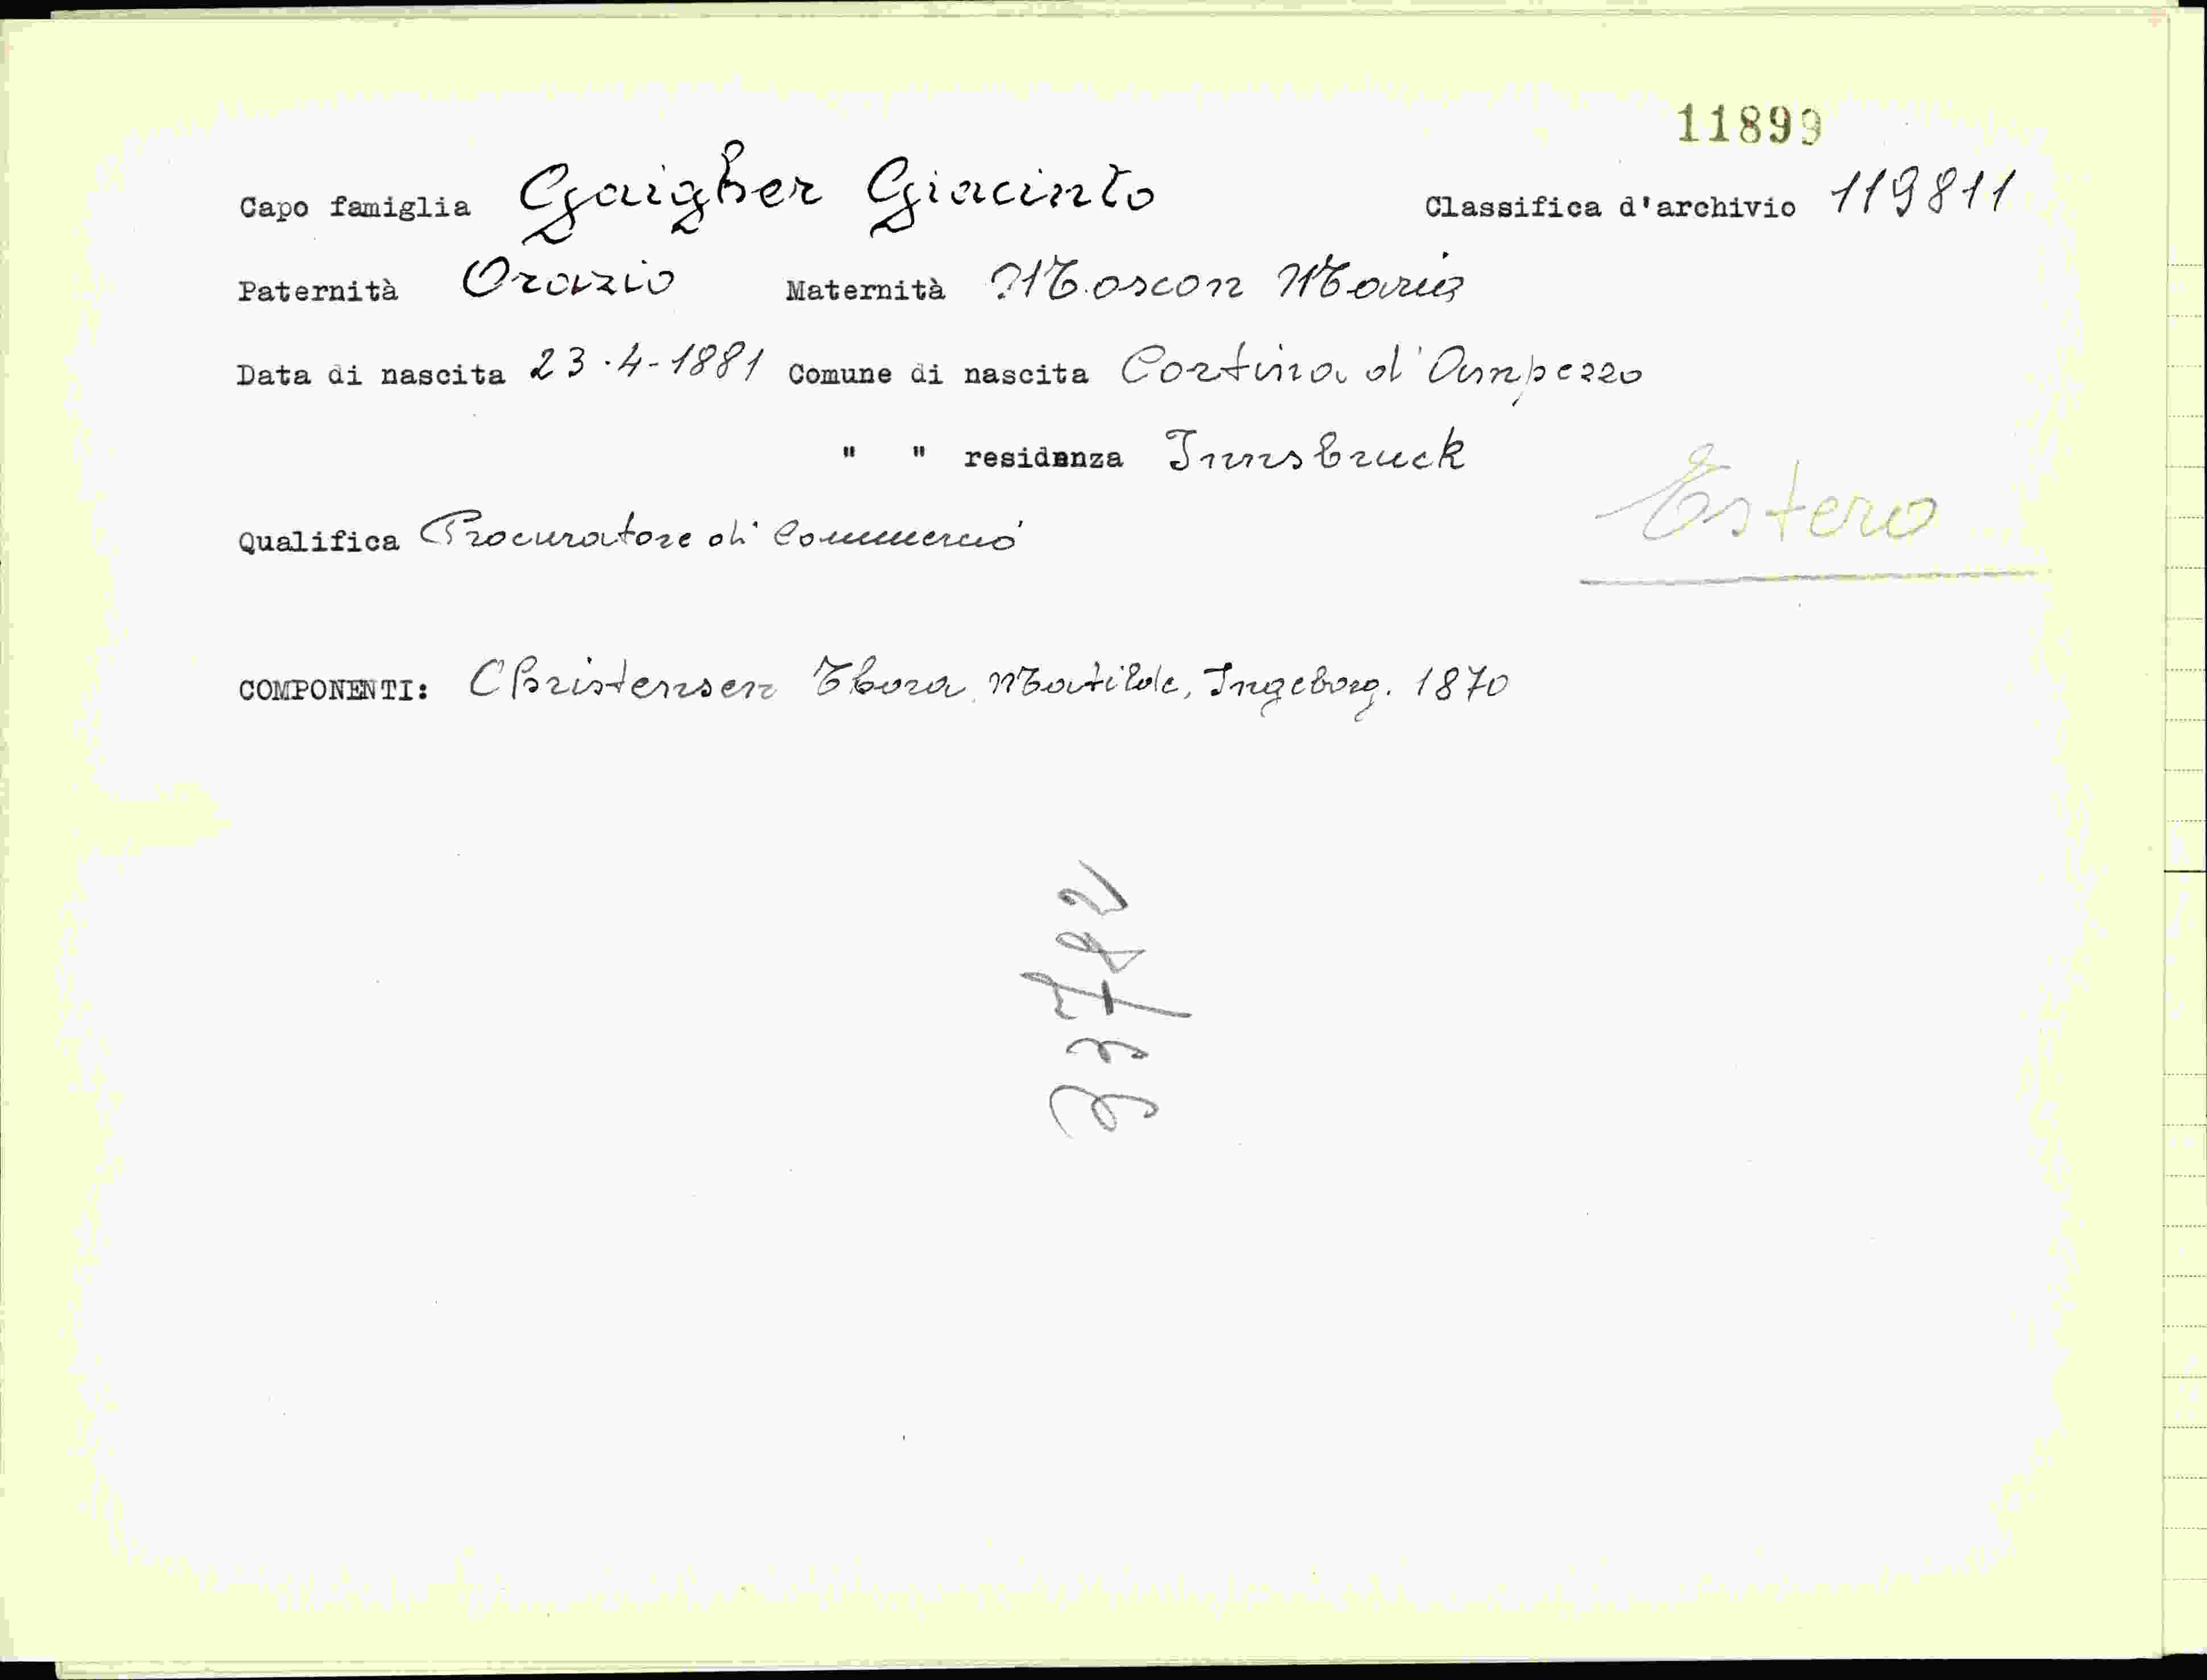 11899
Capo famiglia Gaigher Giacinto Classifica d'archivio 119811
Paternità Orazio Maternità Moscon Maria
Data di nascita 23.4-1881 Comune di nascita Cortina d'Ampezzo
" " residenza Innsbruck
Estero
Qualifica Procuratore di Commercio
COMPONENTI: Christensen Thora Matilde, Ingeborg. 1870
33782